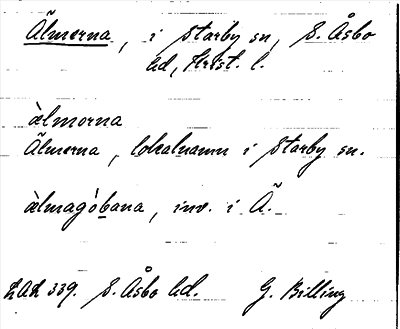 Älmerna, i Starby sn, S. Åsbo
hd, Krist. l.
àlmorna
Älmerna, lokalnamn i Starby sn.
àlmagòbana, inv. i Ä.
LAL 339. S. Åsbo hd. G. Billing